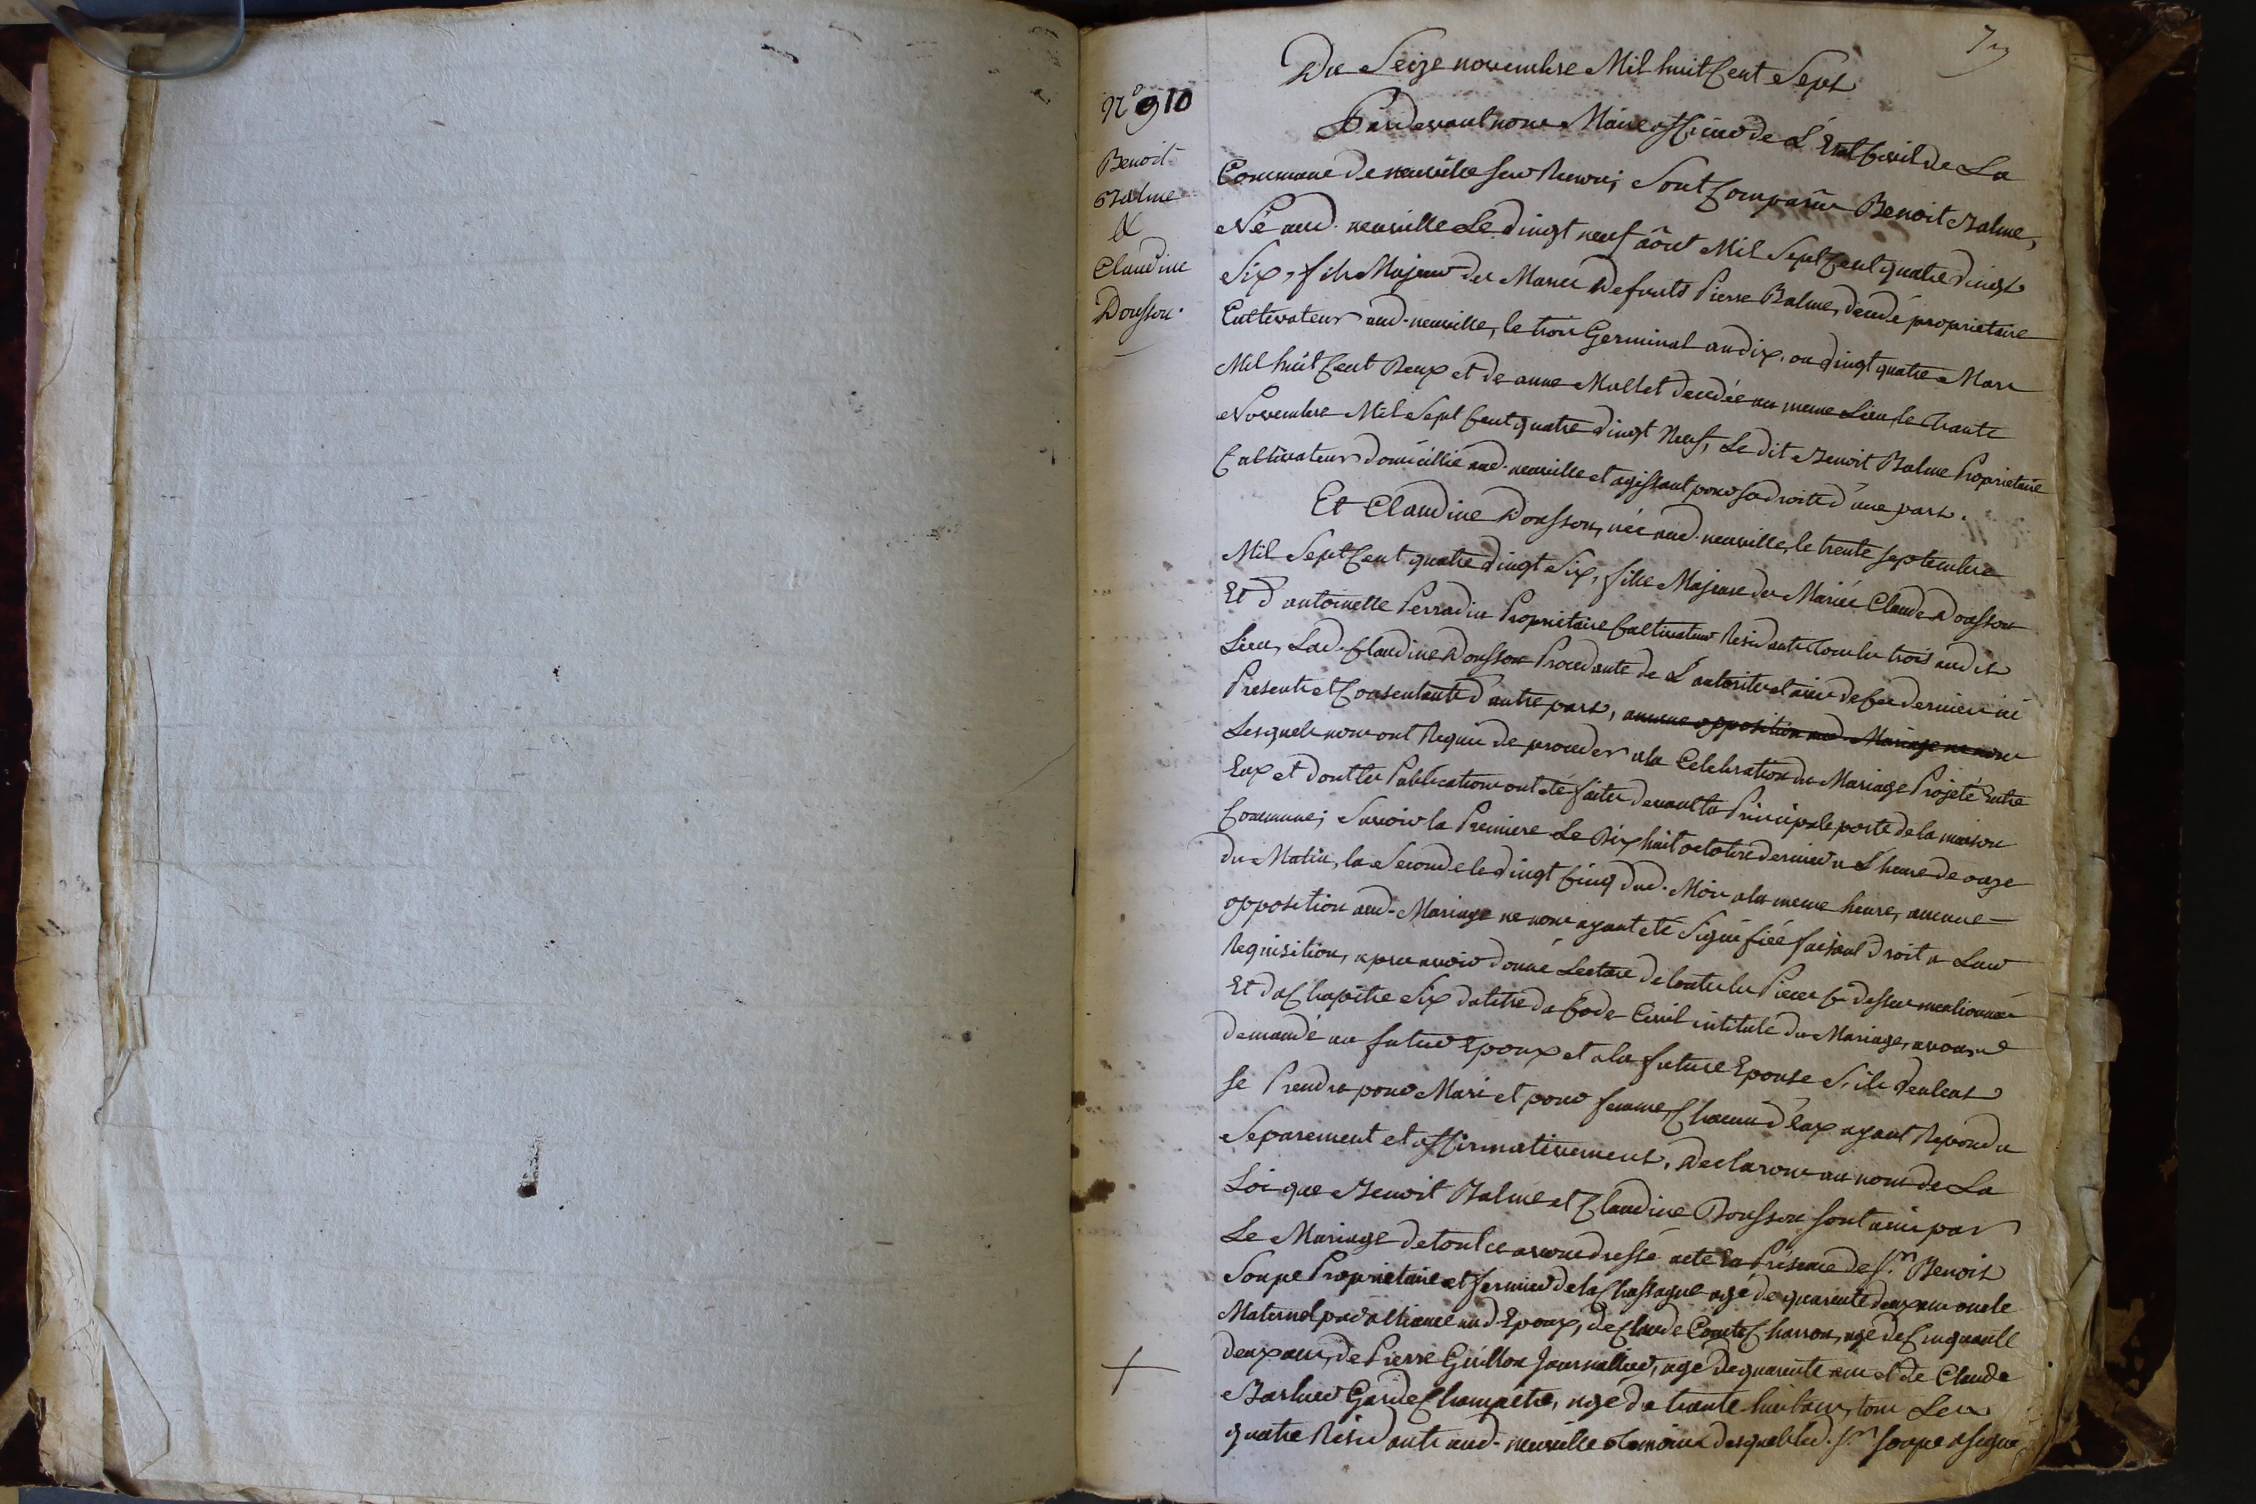 79
Du Seize novembre Mil huit Cent Sept
N° 910
Benoit
Balme
&
Claudine
Dousson.
Pardevant nous Maire officier de L'Etat Civil de La
Commune de neuville sur Renon; Sont Comparus Benoit Balme,
Né aud. neuville Le vingt neuf août Mil Sept Cent quatre vingt
Six, fils Majeur des Mariés defunts Pierre Balme, décédé propriétaire
Cultivateur aud. neuville, le trois Germinal an dix, ou vingt quatre Mars
Mil huit Cent Deux et de anne Mollet decedée au meme Lieu le trante
Novembre Mil Sept Cent quatre vingt Neuf, Le dit Benoit Balme Proprietaire
Cultivateur domicillié aud. neuville et agissant pour ses droits d'une part.
Et Claudine Dousson, née aud. neuville, le trente septembre
Mil Sept Cent quatre vingt Six, fille Majeure des Mariés Claude Dousson
Et d'antoinette Perradin Proprietaire Cultivateurs Residants tous les trois aud it
Lieu, Lad. Claudine Dousson Procedante de L'autorité et avis de ses derniers ici
Presents et Consentants d'autre part, aucune opposition aud. Mariage ne nous
Lesquels nous ont Requis de proceder a la Celebration du Mariage Projeté Entre
Eux et dont les Publications ont été faites devant la Principale porte de la maison
Commune; Savoir la Premiere Le Dix huit octobre dernier a L'heure de onze
du Matin, la Seconde le vingt Cinq dud. Mois a la meme heure, aucune
opposition aud. Mariage ne nous ayant eté Signifiée faisant droit a Leur
Requisition, apres avoir donné Lecture de toutes les Pieces Cy dessus mentionnées
Et du Chapitre Six du titre du Code Civil intitulé du Mariage, avons
demandé au futur Epoux et a la future Epouse S'ils veulent
se Prendre pour Mari et pour femme, Chacun d'Eux ayant Repondu
Separement et affirmativement, Declarons au nom de La
Loi que Benoit Balme et Claudine Dousson sont unis par
Le Mariage de tout ce avons dressé acte En Présence de Sr. Benoit
Soupe Proprietaire et fermier de la Chassagne agé de quarente deux ans oncle
Maternel par alliance aud. Epoux, de Claude Comte Charron, agé de Cinquante
deux ans, de Pierre Guillon Journallier, agé de quarente ans et de Claude
Garde Champetre, agé de trante huit ans, tous Les
quatre Residants aud. neuville temoins desquels led. Sr. Soupe a signé